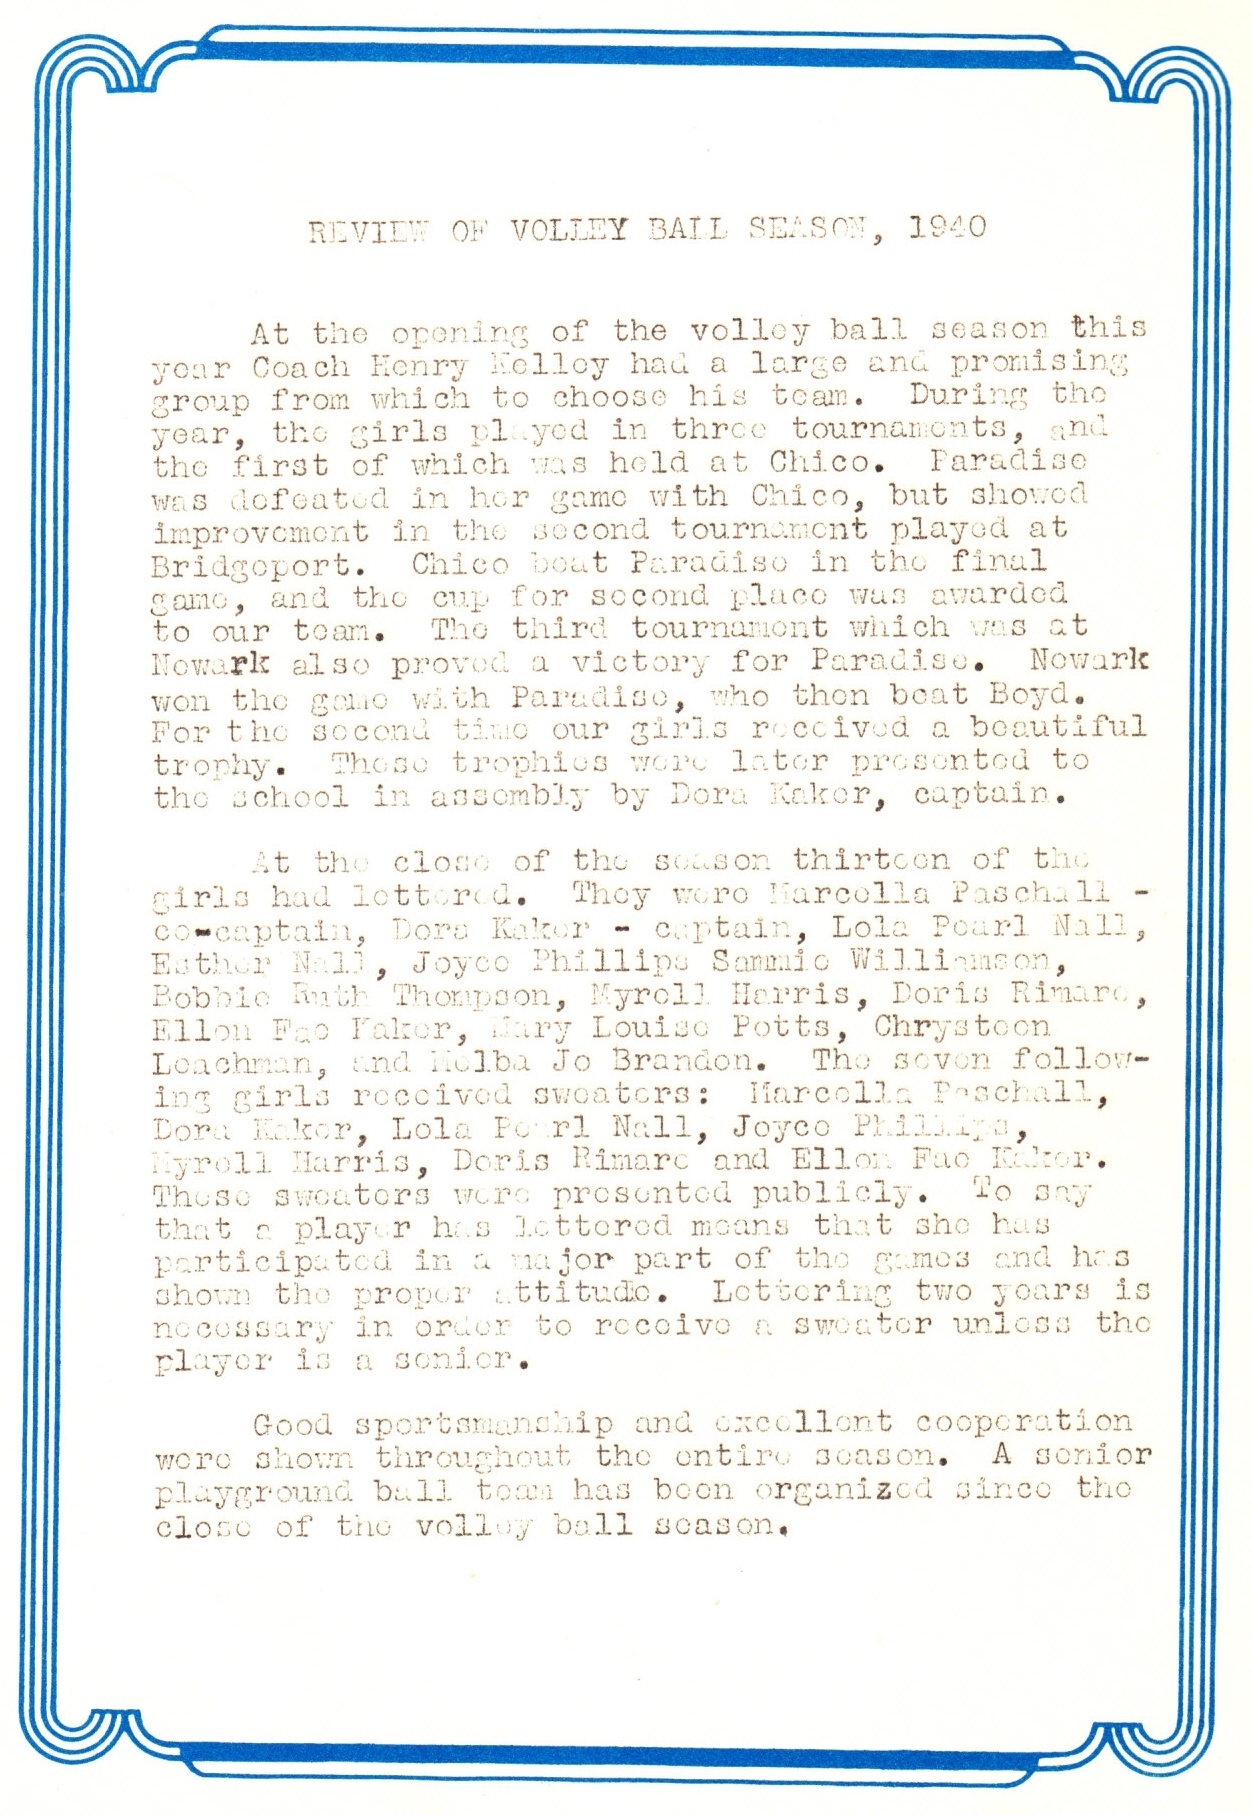 REVIEW OF VOLLEY BALL SEASON, 1940
At the opening of the volley ball season this
year Coach Henry Kelley had a large and promising
group from which to choose his team. During the
year, the girls played in three tournaments, and
the first of which was held at Chico. Paradise
was defeated in her game with Chico, but showed
improvement in the second tournament played at
Bridgeport. Chico beat Paradise in the final
game, and the cup for second place was awarded
to our team. The third tournament which was at
Newark also proved a victory for Paradise. Newark
won the game with Paradise, who then beat Boyd.
For the second time our girls received a beautiful
trophy. These trophies were later presented to
the school in assembly by Dora Kaker, captain.
At the close of the season thirteen of the
girls had lettered. They were Marcella Paschall -
co-captain, Dora Kaker - captain, Lola Pearl Nall,
Esther Nall, Joyce Phillips Sammie Williamson,
Bobbie Ruth Thompson, Myrell Harris, Doris Rimare,
Ellen Fae Kaker, Mary Louise Potts, Chrysteen
Leachman, and Melba Jo Brandon. The seven follow-
ing girls received sweaters: Marcella Paschall,
Dora Kaker, Lola Pearl Nall, Joyce Phillips,
Myrell Harris, Doris Rimare and Ellen Fae Kaker.
These sweaters were presented publicly. To say
that a player has lettered means that she has
participated in a major part of the games and has
shown the proper attitude. Lettering two years is
necessary in order to receive a sweater unless the
player is a senior.
Good sportsmanship and excellent cooperation
were shown throughout the entire season. A senior
playground ball team has been organized since the
close of the volley ball season.